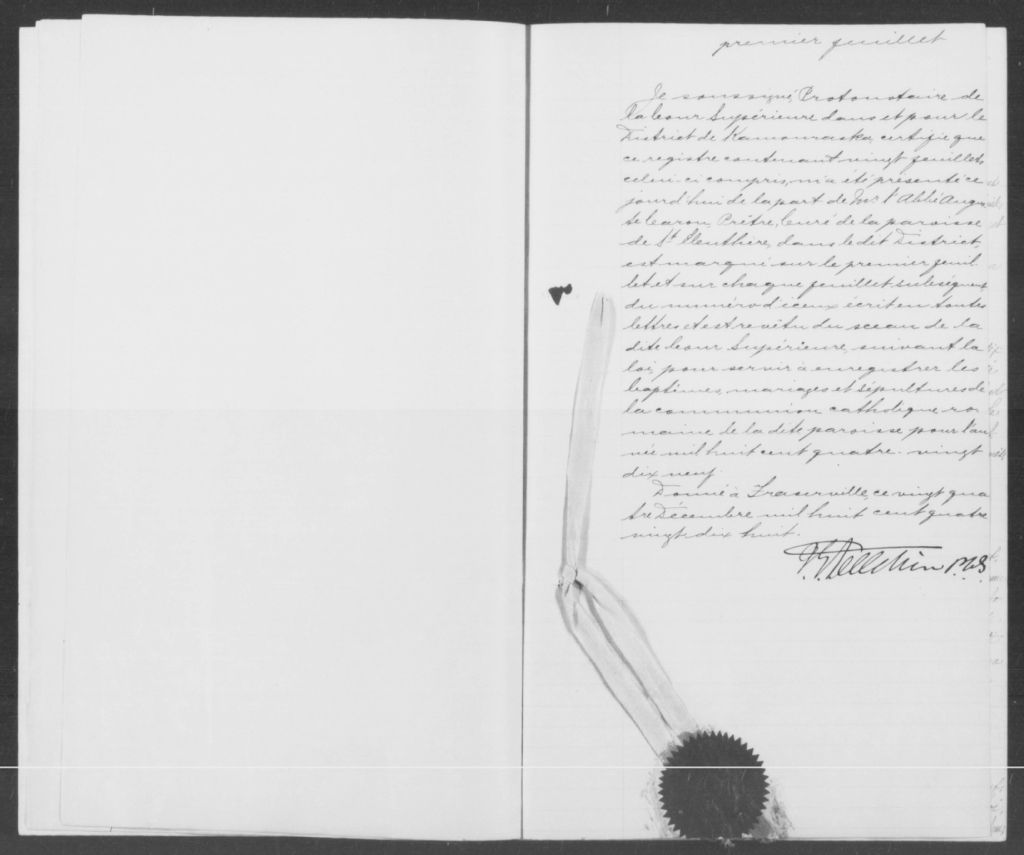 premier feuillet
Je soussigné, Protonotaire de
la Cour Supérieure dans et pour le
District de Kamouraska, certifie que
ce registre contenant vingt feuillets
celui-ci compris, m'a été présenté ce
jourd'hui de la part de Mr l'Abbé Augus
te Caron, Prêtre, Curé de la paroisse
de St Eleuthère, dans le dit District,
est marqué sur le premier feuil
let et sur chaque feuillet subséquent
du numéro d'iceux écrit en toutes
lettres et est revêtu du sceau de la
dite Cour Supérieure, suivant la
loi, pour servir à enregistrer les
baptêmes, mariages et sépultures de
la communion catholique ro
maine de la dite paroisse pour l'an
née mil huit cent quatre-vingt
dix neuf.
Donné à Fraserville, ce vingt qua
tre Décembre mil huit cent quatre
vingt dix huit.
Pelletier P.C.S.